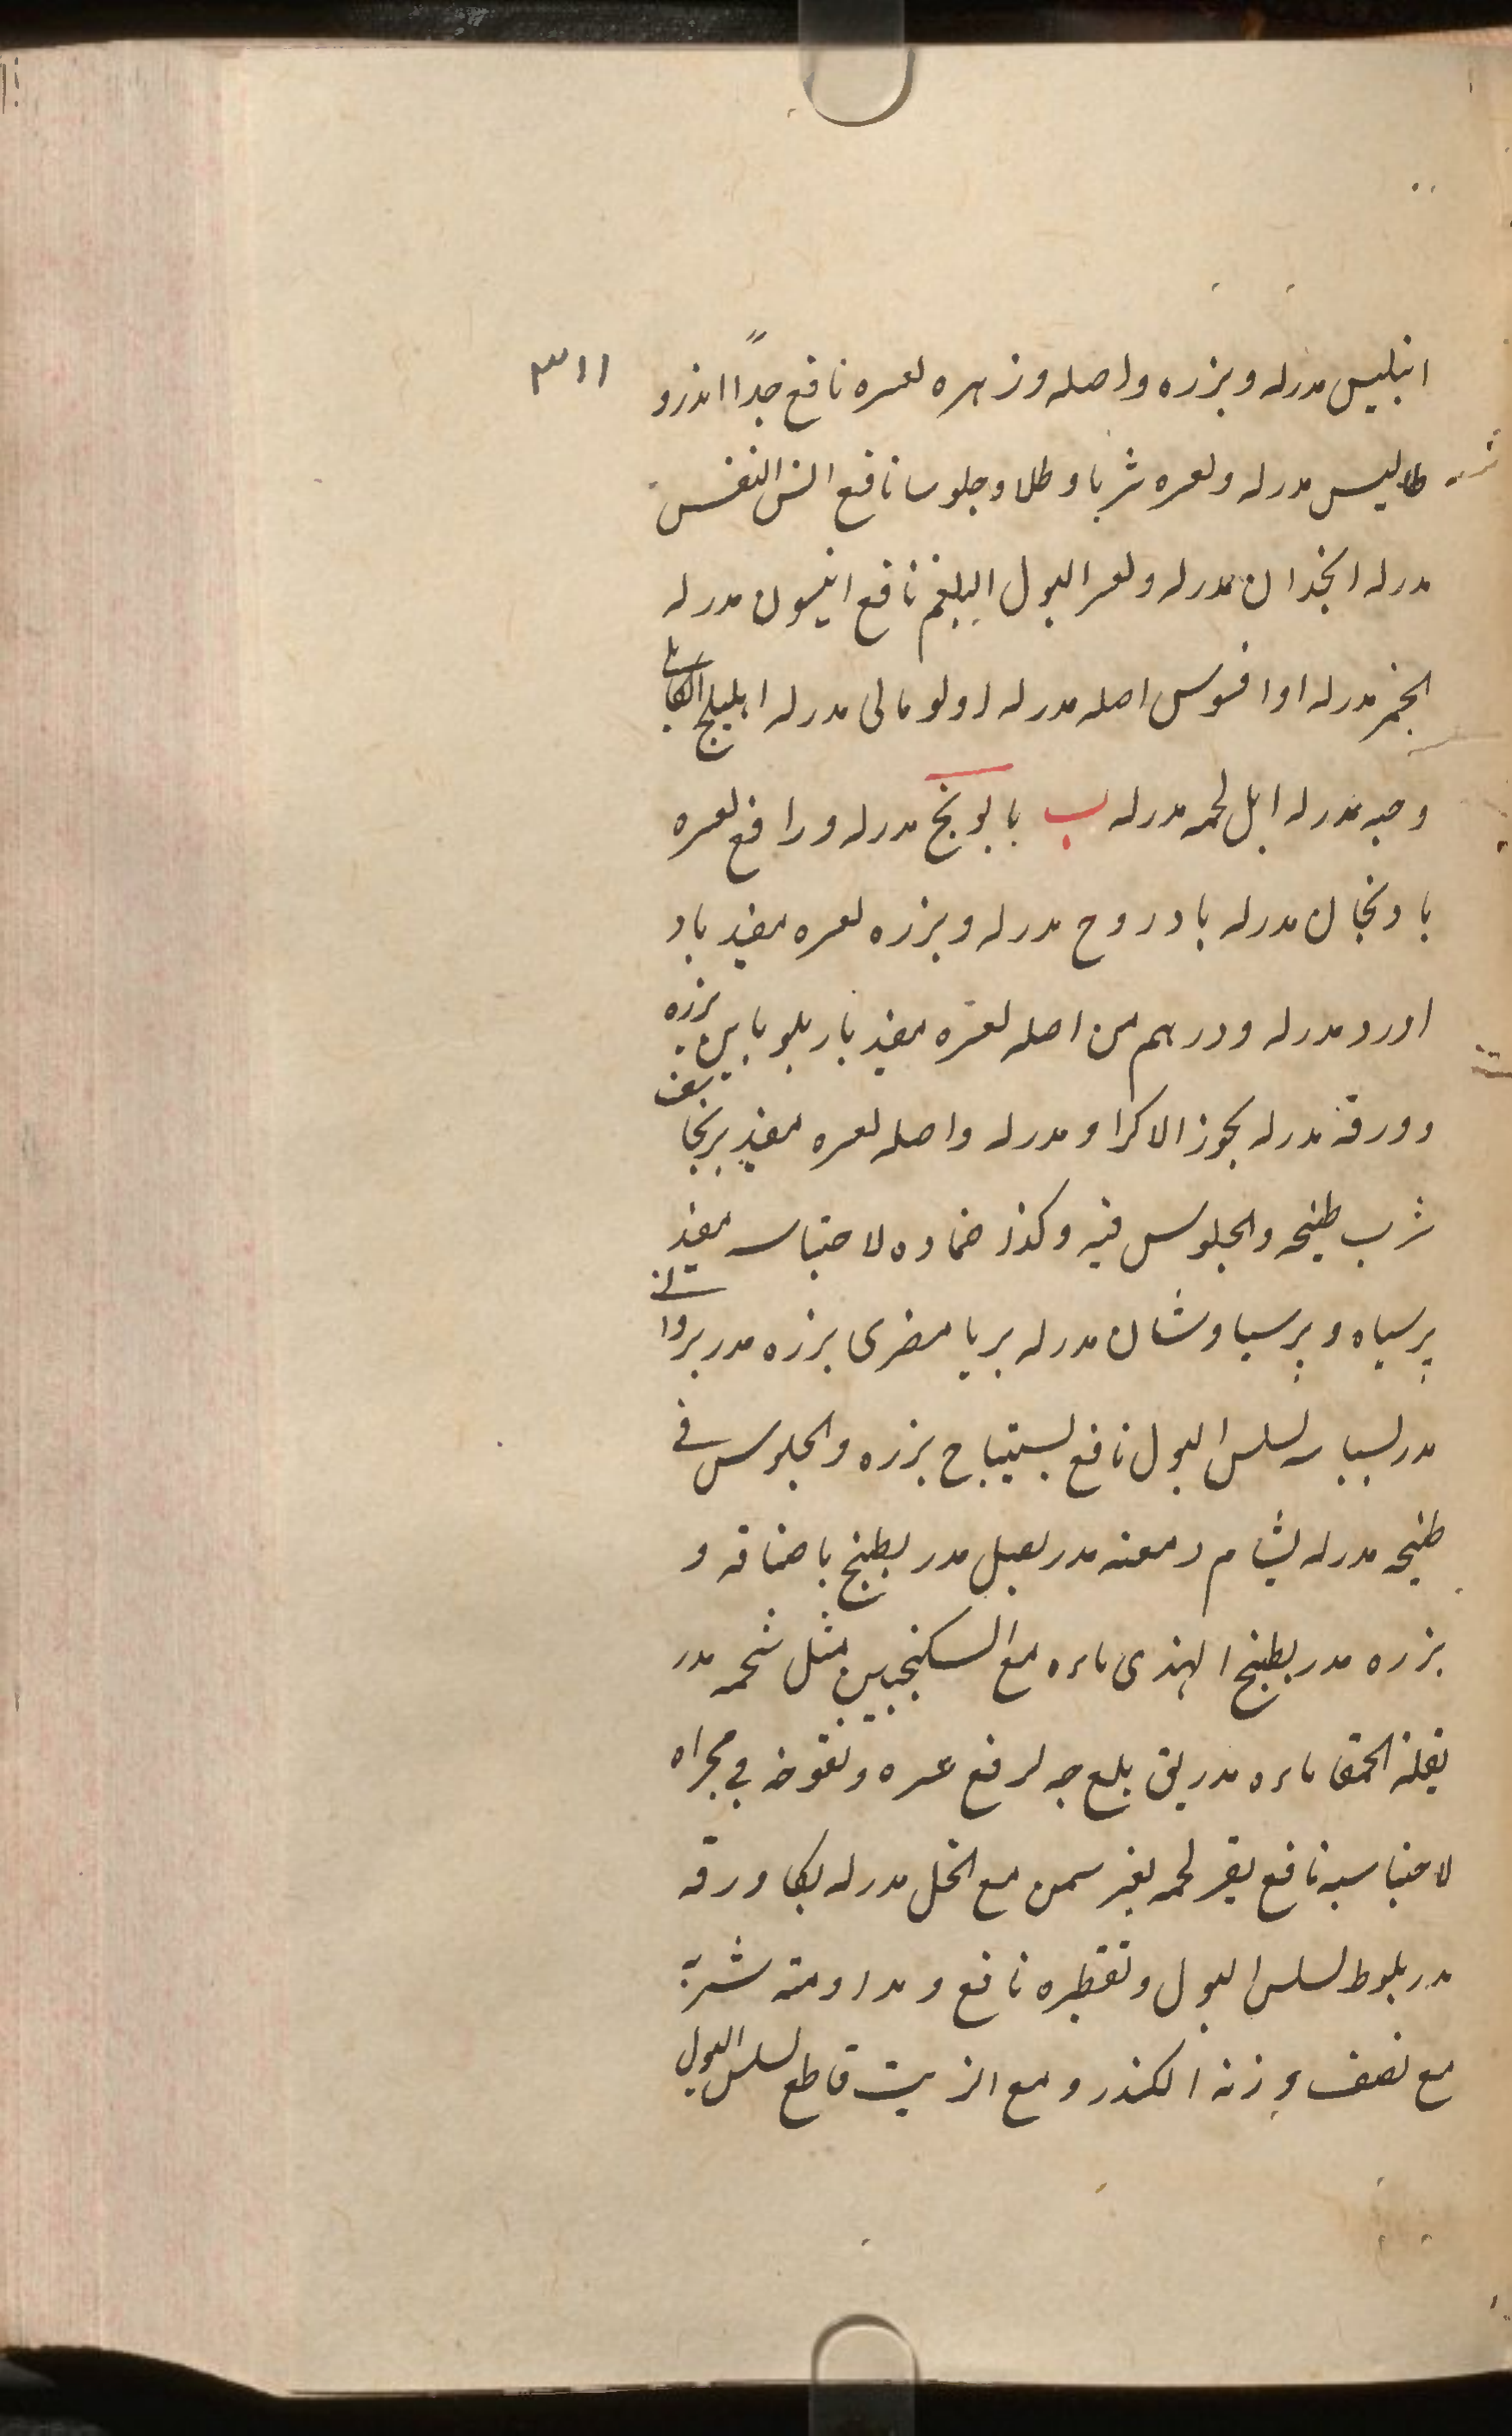 ٣١١
انبليس مدرله وبزره واصله وزهره لعسره نافع جداً اندرو
طاليس مدرله ولعسره شربا وطلا وجلوسا نافع النفس
مدرله انجدان مدرله ولعسر البول البلغم نافع انيسون مدرله
الخمر مدرله اوافسوس اصله مدرله اولومالى مدرله اهليلج الكابلى
وحبه مدرله ايل لحمه مدرله ب بابونج مدرله ورافع لعسره
بادنجان مدرله بادروج مدرله وبزره لعسره مفيد باد
اورد مدرله ودرهم من اصله لعسره مفيد باربلوبابين بزره
وورقه مدرله بخور الاكراد مدرله واصله لعسره مفيد برنجاسف
شرب طبيخه والجلوس فيه وكذا ضماده لاحتباسه مفيد
پرسياه وپرسياوشان مدرله بريا مصرى بزره مدر بروانى
مدر بسباسه لسلس البول نافع بستيباح بزره والجلوس فى
طبيخه مدرله بشام دمعته مدر بصل مدر بطيخ باصنافه و
بزره مدر بطيخ الهندى ماءه مع السكنجبين مثل شحمه مدر
بقلة الحمقا ماءه مدر بق بلع حبه لرفع عسره ونفوخه في مجراه
لاحتباسه نافع بقر لحمه بغير سمن مع الخل مدرله بكا ورقه
مدر بلوط لسلس البول وتقطيره نافع ومداومته شربه
مع نصف وزنه الكندر ومع الزيت قاطع لسلس البول